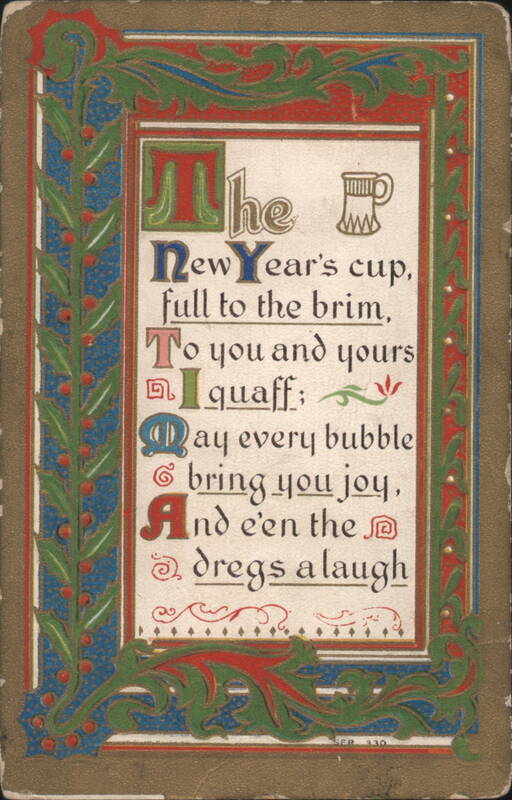 The
New Year's cup,
full to the brim,
To you and yours
I quaff;
May every bubble
bring you joy,
And e'en the
dregs a laugh
SER. 330